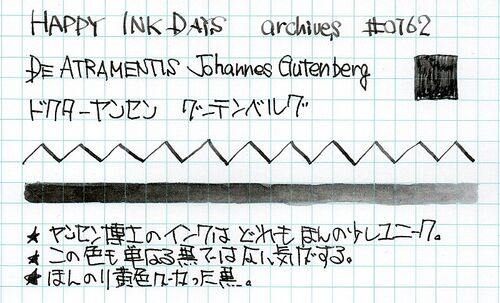 HAPPY INK DAYS archives #0762
DE ATRAMENTIS Johannes Gutenberg
ドクターヤンセン グーテンベルグ
★ ヤンセン博士のインクは どれも ほんの少しユニーク。
★ この色も単なる黒ではない気がする。
★ ほんのり黄色がかった黒。